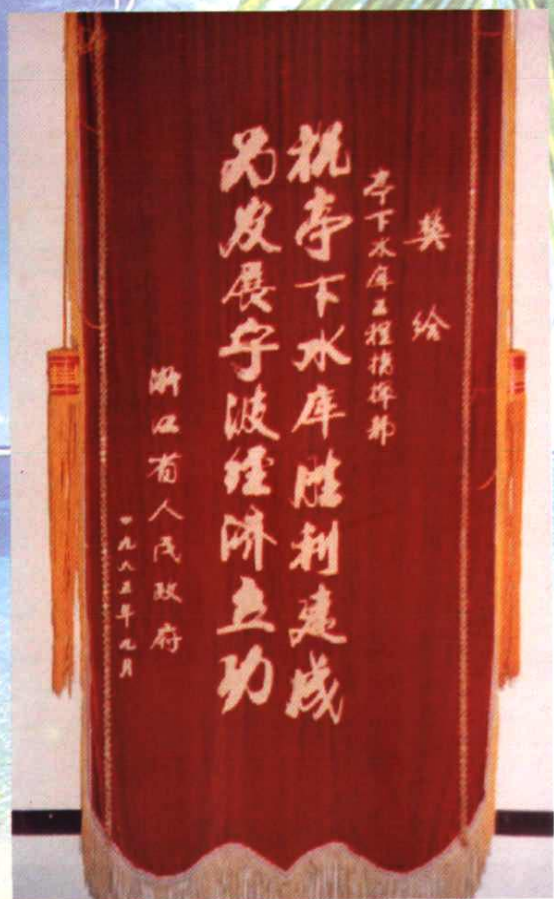 奖给
亭下水库工程指挥部
祝亭下水库胜利建成
为发展宁波经济立功
浙江省人民政府
一九八五年九月